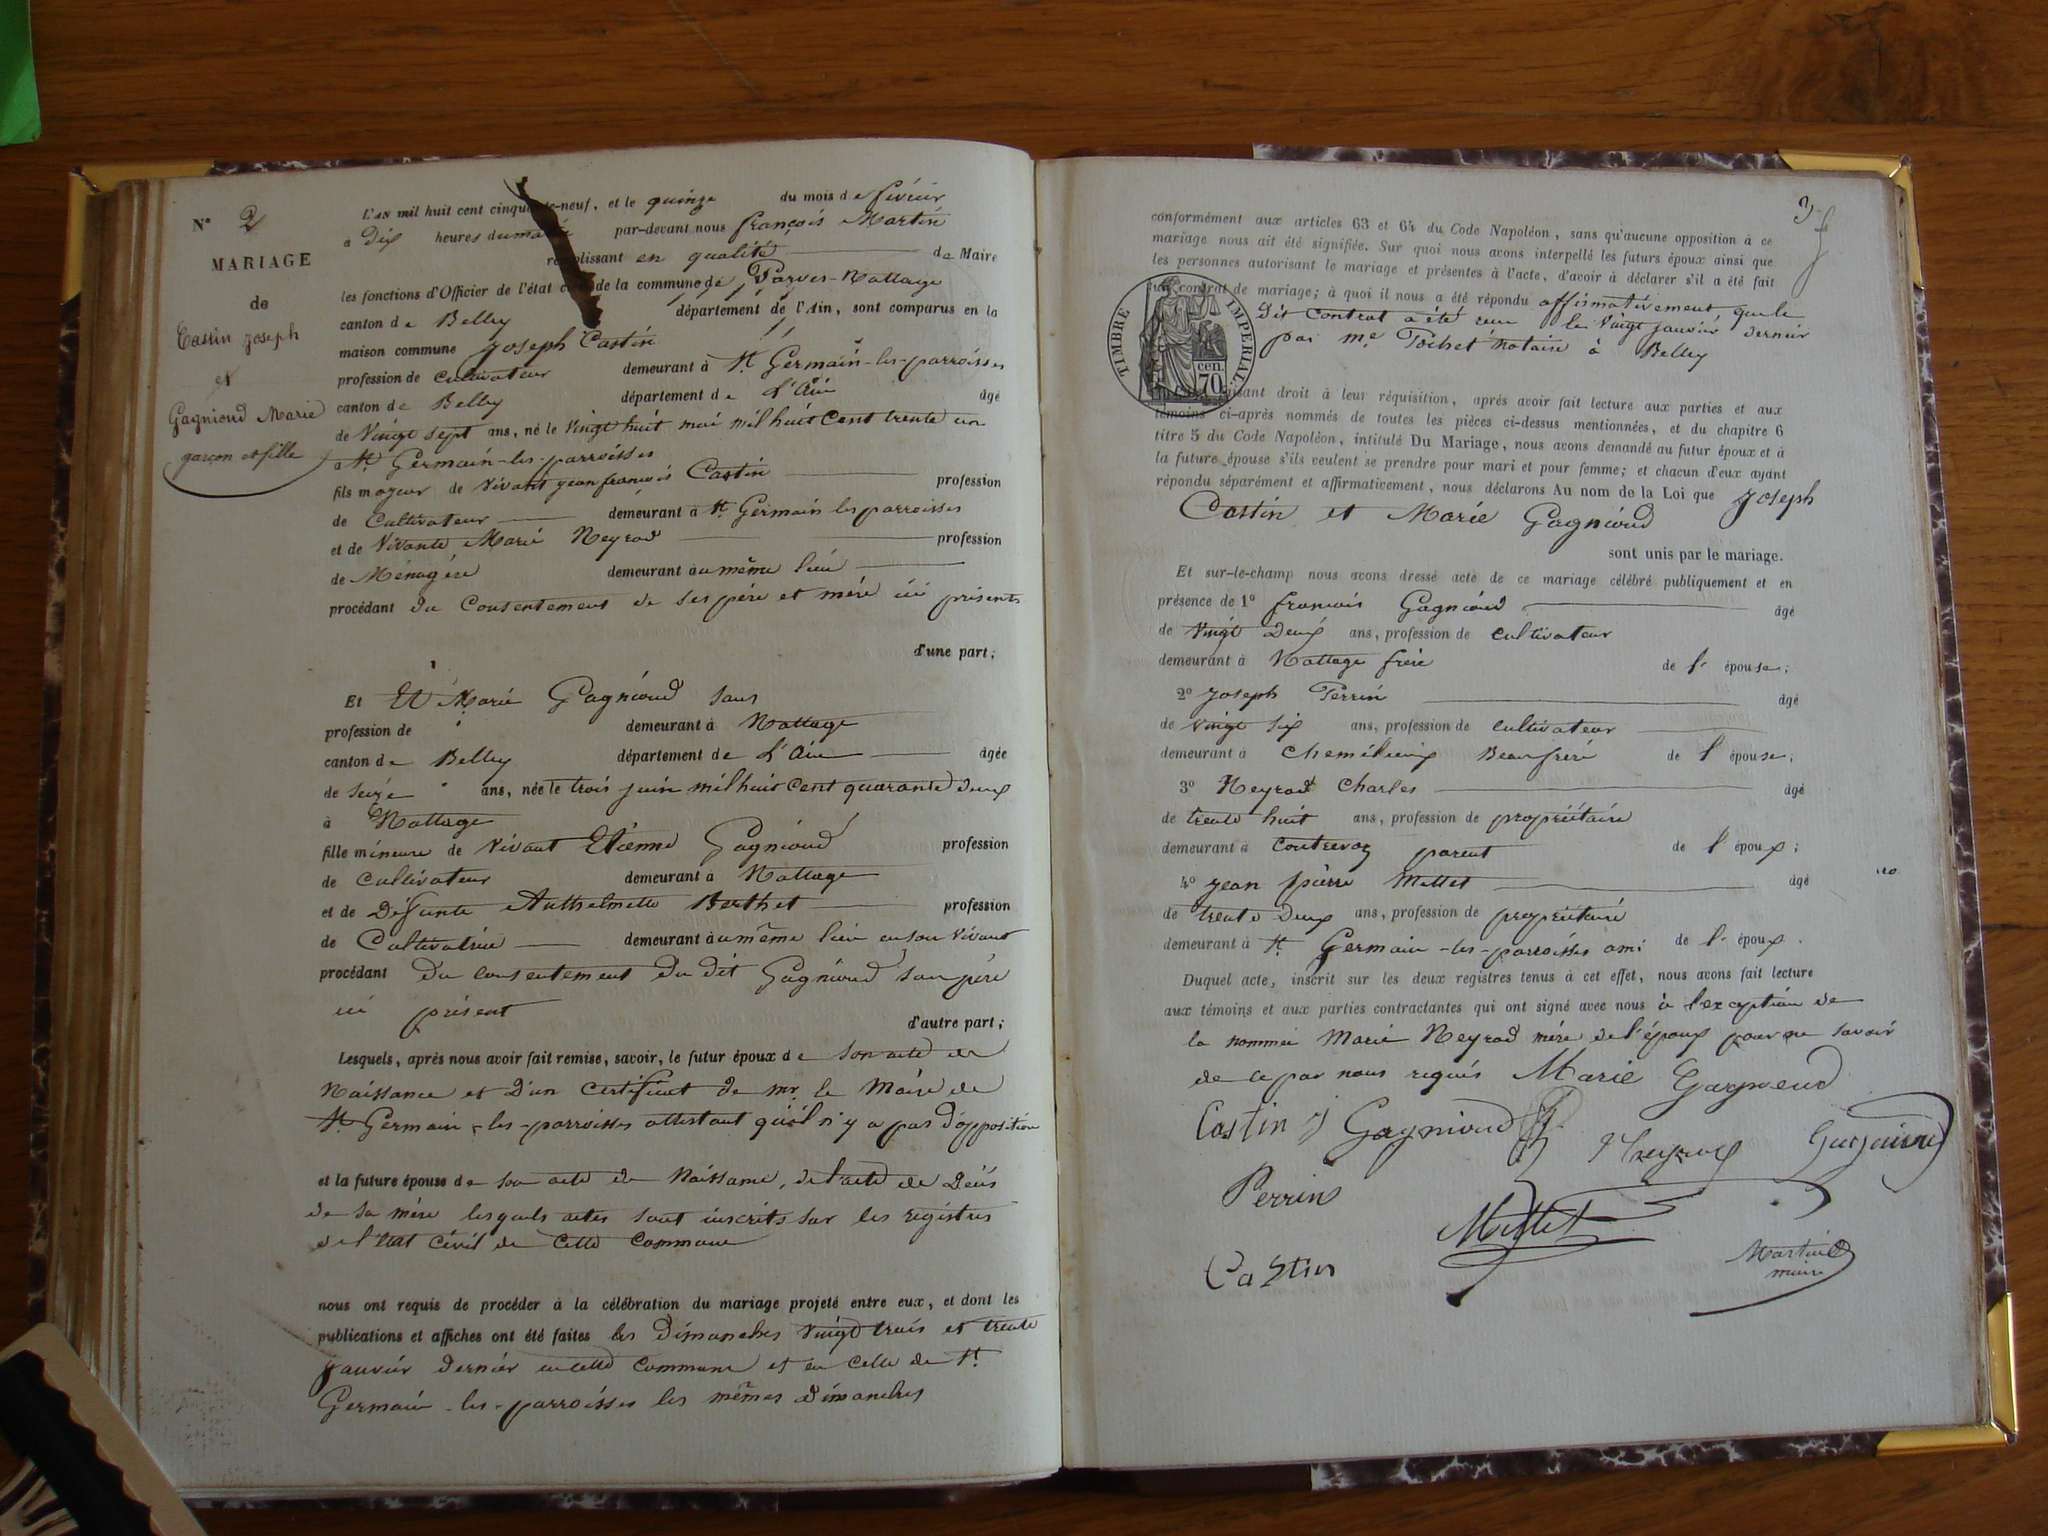 N° 2
MARIAGE
de
Castin Joseph
et
Gagnioud Marie
garçon et fille
L'AN mil huit cent cinquante-neuf, et le quinze du mois de février
à Dix heures du matin par-devant nous françois Martin
remplissant en qualité de Maire
les fonctions d'Officier de l'état civil de la commune de Parves-Nattage
canton de Belley département de l'Ain, sont comparus en la
maison commune Joseph Castin
profession de cultivateur demeurant à St Germain-les-parroisses
canton de Belley département de L'Ain âgé
de Vingt sept ans, né le Vingt huit mai mil huit Cent trente un
à St Germain-les-parroisses
fils majeur de Vivant jean françois Castin profession
de Cultivateur demeurant à St Germain les parroisses
et de Vivante Marie Neyrod profession
de Ménagère demeurant au même lieu
procédant du Consentement de ses père et mère ici présents
d'une part;
Et Et Marie Gagnioud sans
profession de demeurant à Nattage
canton de Belley département de L'Ain âgée
de Seize ans, née le trois juin mil huit Cent quarante deux
à Nattage
fille mineure de Vivant Etienne Gagnioud profession
de Cultivateur demeurant à Nattage
et de Défunte Anthelmette Berthet profession
de Cultivatrice demeurant au même lieu en son vivant
procédant Du consentement Du Dit Gagnioud son père
ici présent
d'autre part;
Lesquels, après nous avoir fait remise, savoir, le futur époux de Son acte de
Naissance et D'un Certificat de mr. le Maire de
St Germain-les-parroisses attestant qu'il n'y a pas D'opposition
et la future épouse de son acte de Naissance, de l'acte de Décès
de sa mère lesquels actes sont inscrits sur les registres
de l'Etat Civil de Cette Commune
nous ont requis de procéder à la célébration du mariage projeté entre eux, et dont les
publications et affiches ont été faites les Dimanches Vingt trois et trente
janvier Dernier en cette Commune et en Celle de St
Germain-les-parroisses les mêmes Dimanches
conformément aux articles 63 et 64 du Code Napoléon, sans qu'aucune opposition à ce
mariage nous ait été signifiée. Sur quoi nous avons interpellé les futurs époux ainsi que
les personnes autorisant le mariage et présentes à l'acte, d'avoir à déclarer s'il a été fait
un contrat de mariage; à quoi il nous a été répondu affirmativement que le
Dit Contrat a été reçu le Vingt janvier Dernier
par me Poihet notaire à Belley
TIMBRE IMPERIAL
cen.
70
faisant droit à leur réquisition, après avoir fait lecture aux parties et aux
témoins ci-après nommés de toutes les pièces ci-dessus mentionnées, et du chapitre 6
titre 5 du Code Napoléon, intitulé Du Mariage, nous avons demandé au futur époux et à
la future épouse s'ils veulent se prendre pour mari et pour femme; et chacun d'eux ayant
répondu séparément et affirmativement, nous déclarons Au nom de la Loi que Joseph
Castin et Marie Gagnioud
sont unis par le mariage.
Et sur-le-champ nous avons dressé acte de ce mariage célébré publiquement et en
présence de 1° françois Gagnioud âgé
de Vingt Deux ans, profession de cultivateur
demeurant à Nattage frère de l' épouse;
2° Joseph Perrin âgé
de Vingt six ans, profession de cultivateur
demeurant à Chemillieux Beaufrère de l' épouse;
3° Neyrod Charles âgé
de trente huit ans, profession de propriétaire
demeurant à Contrevoz parent de l' époux;
4° jean pierre Mettet âgé
de trente Deux ans, profession de propriétaire
demeurant à St Germain-les-parroisses ami de l' époux.
Duquel acte, inscrit sur les deux registres tenus à cet effet, nous avons fait lecture
aux témoins et aux parties contractantes qui ont signé avec nous à l'exception de
la nommée Marie Neyrod mère de l'époux pour ne savoir
de ce par nous requis Marie Gagnieud
Castin j Gagnioud
Perrin
Mettet
Castin
Martin
maire